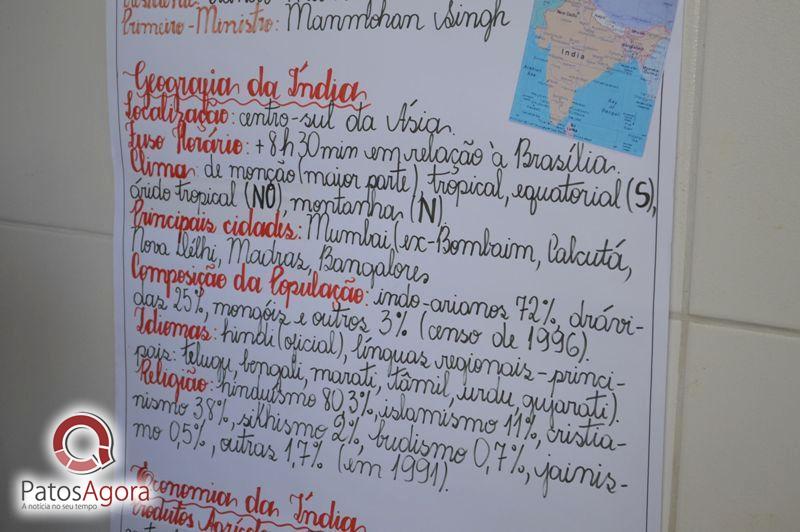 Primeiro-Ministro: Manmohan Singh
Geografia da Índia
Localização: centro-sul da Ásia.
Fuso Horário: +8h30min em relação à Brasília.
Clima: de monção (maior parte), tropical, equatorial (S),
árido tropical (NO), montanha (N)
Principais cidades: Mumbai (ex-Bombaim, Calcutá,
Nova Délhi, Madras, Bangalores
Composição da População: indo-arianos 72%, drávi-
das 25%, mongóis e outros 3% (censo de 1996).
Idiomas: hindi (oficial), línguas regionais-princi-
pais: telugu, bengali, marati, tâmil, urdu, gujarati).
Religião: hinduísmo 80,3%, islamismo 11%, cristia-
nismo 3,8%, sikhismo 2%, budismo 0,7%, jainis-
mo 0,5%, outras 1,7% (em 1991).
Economia da Índia
Produtos
New Delhi
India
Arabian Sea
Bay of Bengal
PatosAgora
A notícia no seu tempo